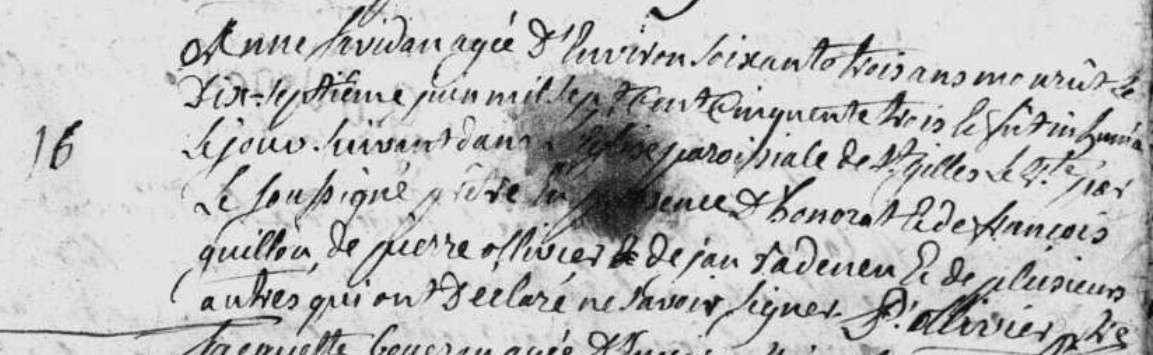 Anne Savidan agée D'Environ soixante trois ans mourût Le
Dix-septième juin mil sept Cent Cinquente trois Et fut inhumée
16 Le jour suivant dans L'Eglise paroissiale de St gilles Le Vte par
Le soussigné prêtre En présence D'honorat Et de françois
quillou, de pierre ollivier & de jan Et de plusieurs
autres qui ont Déclaré ne savoir signer. ollivier ptre
Jacquette agée D'Envi